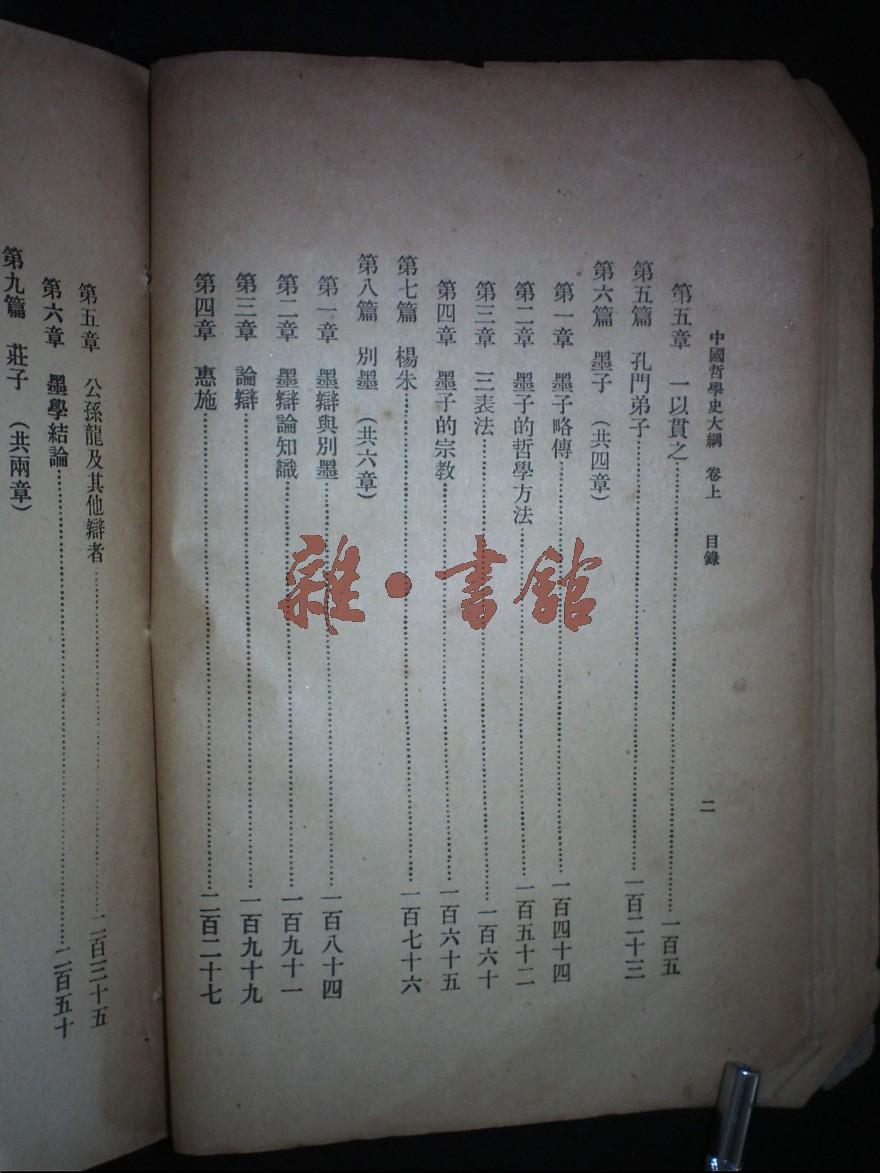 中國哲學史大綱 卷上 目錄 二
第五章 一以貫之……一百五
第五篇 孔門弟子……一百二十三
第六篇 墨子 (共四章)
第一章 墨子略傳……一百四十四
第二章 墨子的哲學方法……一百五十二
第三章 三表法……一百六十
第四章 墨子的宗教……一百六十五
第七篇 楊朱……一百七十六
第八篇 別墨 (共六章)
第一章 墨辯與別墨……一百八十四
第二章 墨辯論知識……一百九十一
第三章 論辯……一百九十九
第四章 惠施……二百二十七
第五章 公孫龍及其他辯者……二百三十五
第六章 墨學結論……二百五十
第九篇 莊子 (共兩章)
雜·書館